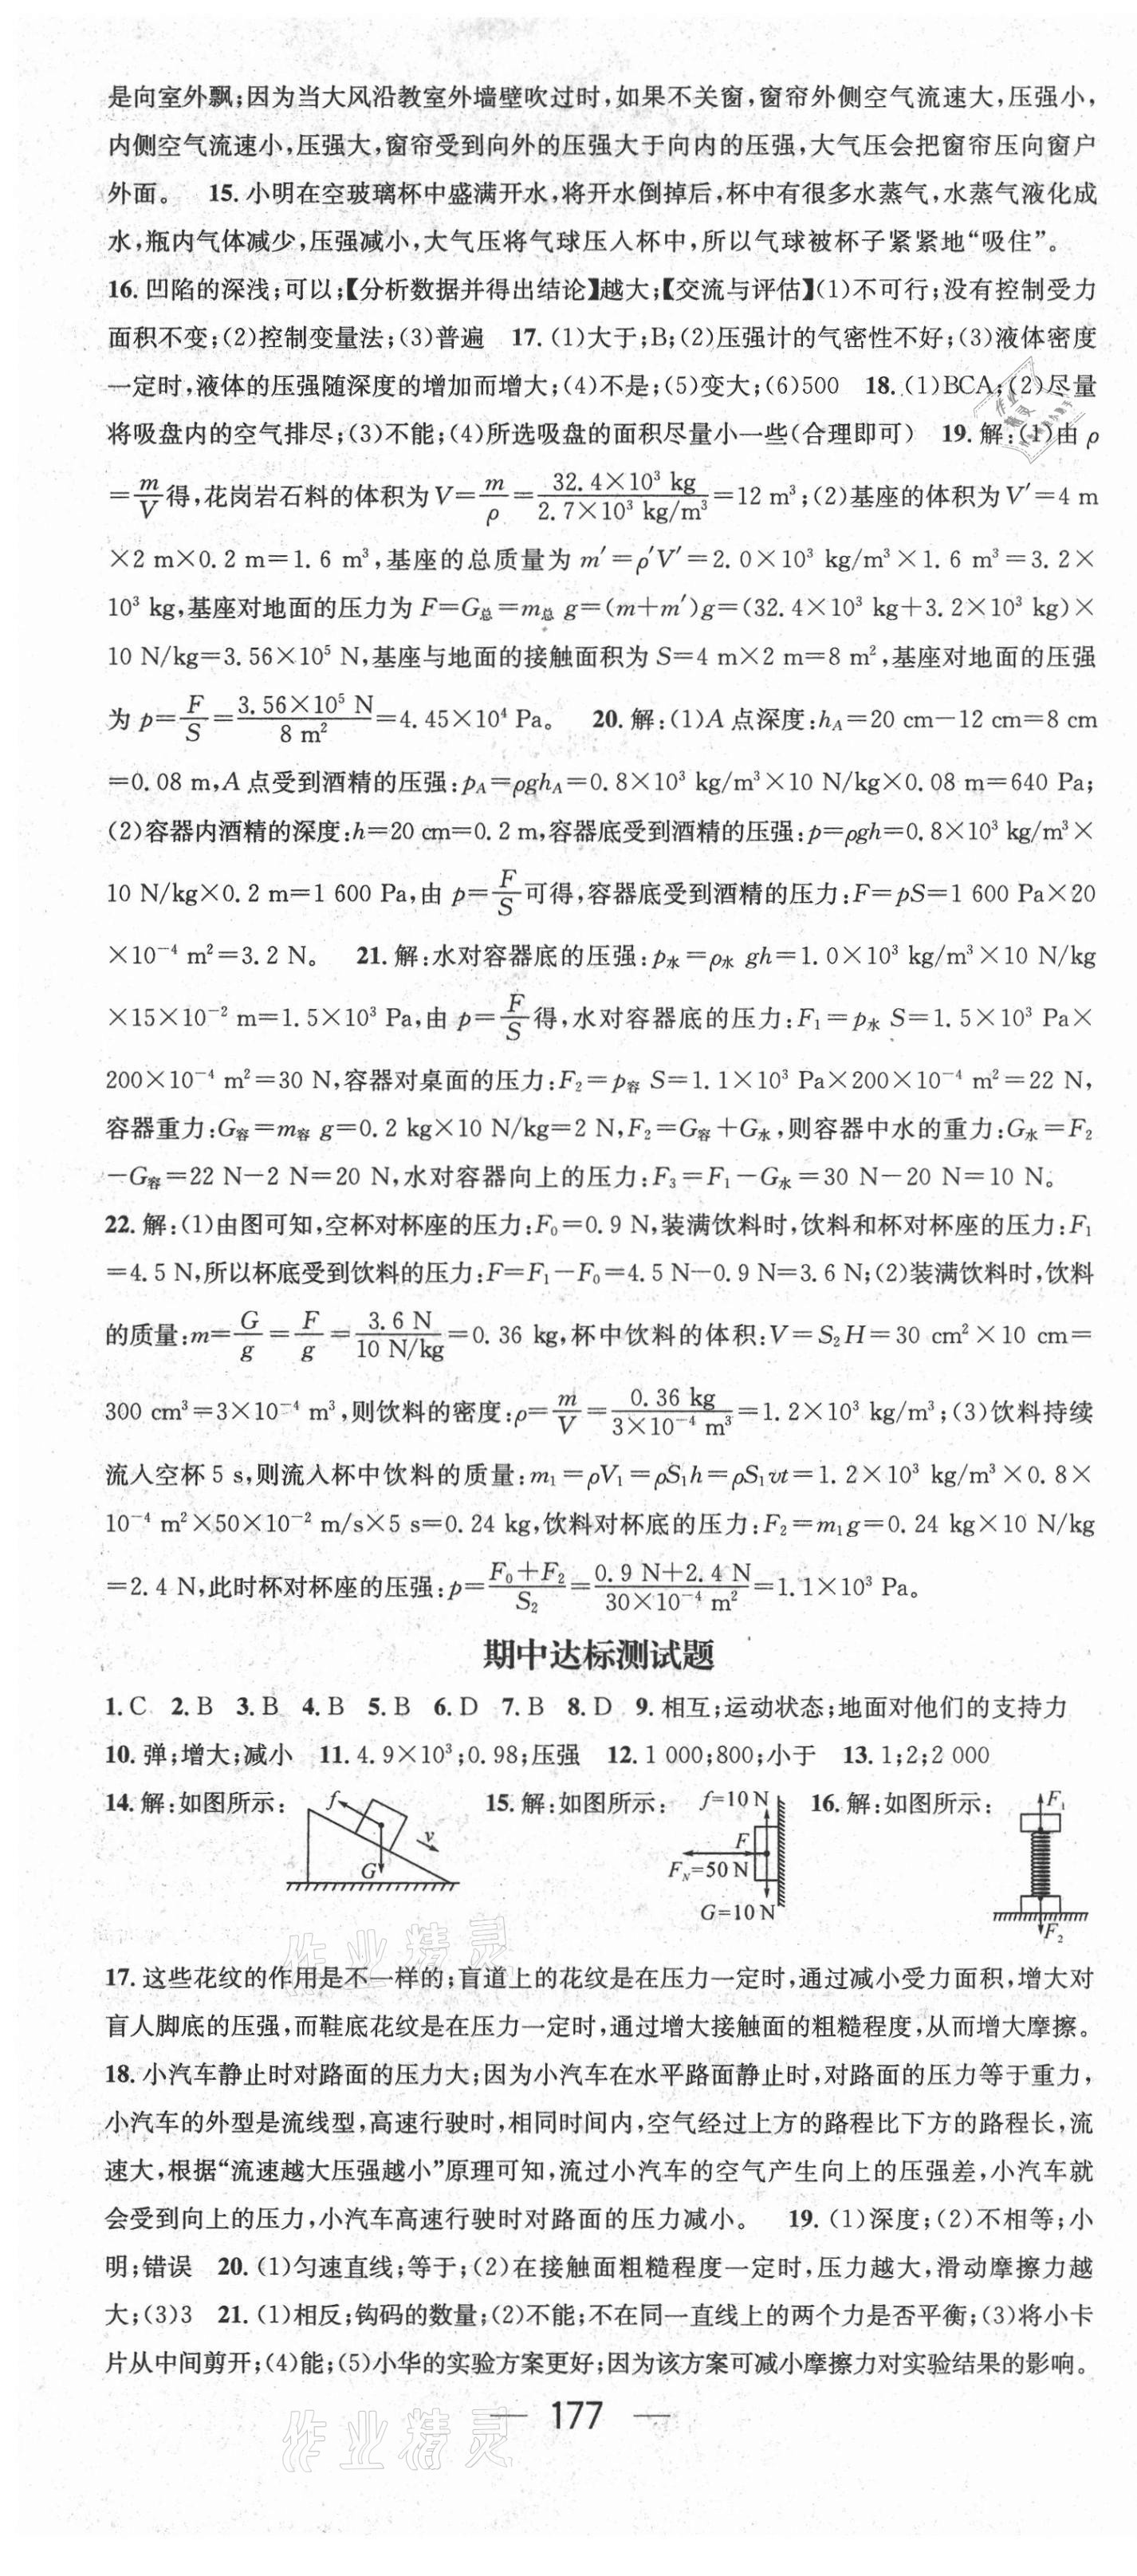 是向室外飘;因为当大风沿教室外墙壁吹过时,如果不关窗,窗帘外侧空气流速大,压强小,
内侧空气流速小,压强大,窗帘受到向外的压强大于向内的压强,大气压会把窗帘压向窗户
外面。 15. 小明在空玻璃杯中盛满开水,将开水倒掉后,杯中有很多水蒸气,水蒸气液化成
水,瓶内气体减少,压强减小,大气压将气球压入杯中,所以气球被杯子紧紧地“吸住”。
16. 凹陷的深浅;可以;【分析数据并得出结论】越大;【交流与评估】(1)不可行;没有控制受力
面积不变;(2)控制变量法;(3)普遍 17. (1)大于;B;(2)压强计的气密性不好;(3)液体密度
一定时,液体的压强随深度的增加而增大;(4)不是;(5)变大;(6)500 18. (1)BCA;(2)尽量
将吸盘内的空气排尽;(3)不能;(4)所选吸盘的面积尽量小一些(合理即可) 19. 解:(1)由 ρ
=m/V得,花岗岩石料的体积为V=m/ρ=32.4×10³ kg/2.7×10³ kg/m³=12 m³;(2)基座的体积为V′=4 m
×2 m×0.2 m=1.6 m³,基座的总质量为 m′=ρ′V′=2.0×10³ kg/m³×1.6 m³=3.2×
10³ kg,基座对地面的压力为 F=G总=m总 g=(m+m′)g=(32.4×10³ kg+3.2×10³ kg)×
10 N/kg=3.56×10⁵ N,基座与地面的接触面积为 S=4 m×2 m=8 m²,基座对地面的压强
为 p=F/S=3.56×10⁵ N/8 m²=4.45×10⁴ Pa。 20. 解:(1)A 点深度:hA=20 cm-12 cm=8 cm
=0.08 m,A 点受到酒精的压强:pA=ρghA=0.8×10³ kg/m³×10 N/kg×0.08 m=640 Pa;
(2)容器内酒精的深度:h=20 cm=0.2 m,容器底受到酒精的压强:p=ρgh=0.8×10³ kg/m³×
10 N/kg×0.2 m=1 600 Pa,由 p=F/S可得,容器底受到酒精的压力:F=pS=1 600 Pa×20
×10⁻⁴ m²=3.2 N。 21. 解:水对容器底的压强:p水=ρ水 gh=1.0×10³ kg/m³×10 N/kg
×15×10⁻² m=1.5×10³ Pa,由 p=F/S得,水对容器底的压力:F₁=p水 S=1.5×10³ Pa×
200×10⁻⁴ m²=30 N,容器对桌面的压力:F₂=p容 S=1.1×10³ Pa×200×10⁻⁴ m²=22 N,
容器重力:G容=m容 g=0.2 kg×10 N/kg=2 N,F₂=G容+G水,则容器中水的重力:G水=F₂
-G容=22 N-2 N=20 N,水对容器向上的压力:F₃=F₁-G水=30 N-20 N=10 N。
22. 解:(1)由图可知,空杯对杯座的压力:F₀=0.9 N,装满饮料时,饮料和杯对杯座的压力:F₁
=4.5 N,所以杯底受到饮料的压力:F=F₁-F₀=4.5 N-0.9 N=3.6 N;(2)装满饮料时,饮料
的质量:m=G/g=F/g=3.6 N/10 N/kg=0.36 kg,杯中饮料的体积:V=S₂H=30 cm²×10 cm=
300 cm³=3×10⁻⁴ m³,则饮料的密度:ρ=m/V=0.36 kg/3×10⁻⁴ m³=1.2×10³ kg/m³;(3)饮料持续
流入空杯 5 s,则流入杯中饮料的质量:m₁=ρV₁=ρS₁h=ρS₁vt=1.2×10³ kg/m³×0.8×
10⁻⁴ m²×50×10⁻² m/s×5 s=0.24 kg,饮料对杯底的压力:F₂=m₁g=0.24 kg×10 N/kg
=2.4 N,此时杯对杯座的压强:p=F₀+F₂/S₂=0.9 N+2.4 N/30×10⁻⁴ m²=1.1×10³ Pa。
期中达标测试题
1. C 2. B 3. B 4. B 5. B 6. D 7. B 8. D 9. 相互;运动状态;地面对他们的支持力
10. 弹;增大;减小 11. 4.9×10³;0.98;压强 12. 1 000;800;小于 13. 1;2;2 000
14. 解:如图所示: f v G 15. 解:如图所示: f=10 N F F_N=50 N G=10 N 16. 解:如图所示: F₁ F₂
17. 这些花纹的作用是不一样的;盲道上的花纹是在压力一定时,通过减小受力面积,增大对
盲人脚底的压强,而鞋底花纹是在压力一定时,通过增大接触面的粗糙程度,从而增大摩擦。
18. 小汽车静止时对路面的压力大;因为小汽车在水平路面静止时,对路面的压力等于重力,
小汽车的外型是流线型,高速行驶时,相同时间内,空气经过上方的路程比下方的路程长,流
速大,根据“流速越大压强越小”原理可知,流过小汽车的空气产生向上的压强差,小汽车就
会受到向上的压力,小汽车高速行驶时对路面的压力减小。 19. (1)深度;(2)不相等;小
明;错误 20. (1)匀速直线;等于;(2)在接触面粗糙程度一定时,压力越大,滑动摩擦力越
大;(3)3 21. (1)相反;钩码的数量;(2)不能;不在同一直线上的两个力是否平衡;(3)将小卡
片从中间剪开;(4)能;(5)小华的实验方案更好;因为该方案可减小摩擦力对实验结果的影响。
— 177 —
作业精灵
作业精灵